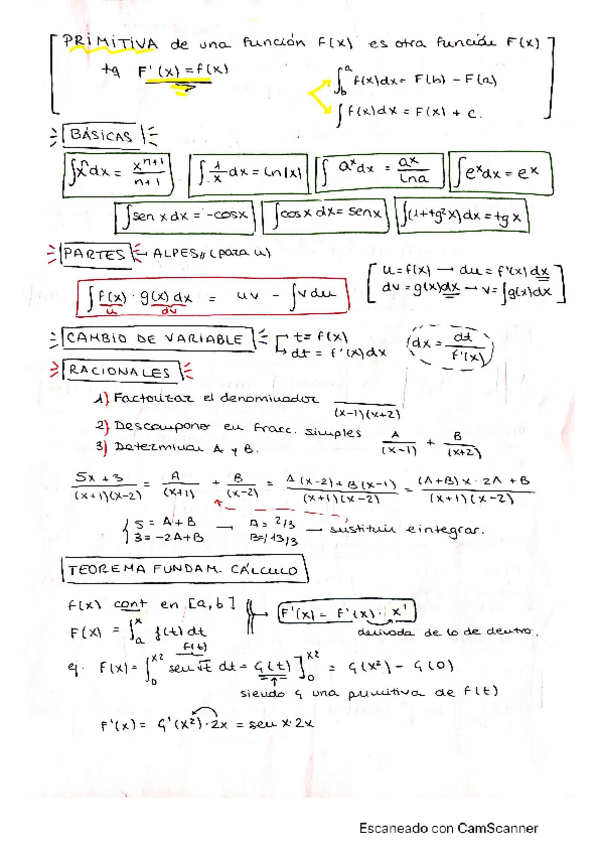 PRIMITIVA de una función f(x) es otra función F(x)
tq F'(x) = f(x)
∫_b^a f(x)dx = F(b) - F(a)
∫f(x)dx = F(x) + c.
BÁSICAS
∫x^n dx = x^(n+1)/(n+1)
∫1/x dx = Ln|x|
∫a^x dx = a^x/Lna
∫e^x dx = e^x
∫sen x dx = -cosx
∫cosx dx = senx
∫(1+tg²x)dx = tg x
PARTES → ALPES,, (para u)
∫f(x)·g(x)dx = uv - ∫vdu
u dv
u = f(x) → du = f'(x)dx
dv = g(x)dx → v = ∫g(x)dx
CAMBIO DE VARIABLE
t = f(x)
dt = f'(x)dx
dx = dt/f'(x)
RACIONALES
1) Factorizar el denominador
(x-1)(x+2)
2) Descomponer en fracc. simples
A/(x-1) + B/(x+2)
3) Determinar A y B.
5x+3/(x+1)(x-2) = A/(x+1) + B/(x-2) = A(x-2)+B(x-1)/(x+1)(x-2) = (A+B)x-2A+B/(x+1)(x-2)
5 = A+B → A = 2/3 → sustituir e integrar.
3 = -2A+B B = 13/3
TEOREMA FUNDAM. CÁLCULO
f(x) cont en [a,b]
F'(x) = F'(x)·x'
F(x) = ∫_a^x f(t) dt
derivada de lo de dentro.
f(t)
ej. F(x) = ∫_0^x2 sen√t dt = G(t)]_0^x2 = G(x²) - G(0)
siendo G una primitiva de f(t)
F'(x) = G'(x²)·2x = sen x·2x
Escaneado con CamScanner